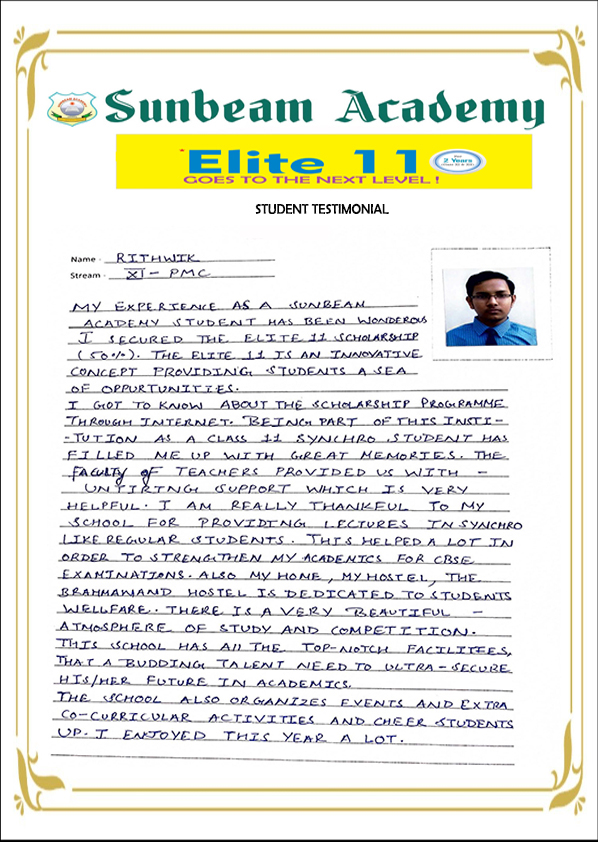 Sunbeam Academy
Elite 11
2 Years
GOES TO THE NEXT LEVEL !
STUDENT TESTIMONIAL
Name - RITHWIK
Stream - XI - PMC
MY EXPERIENCE AS A SUNBEAM
ACADEMY STUDENT HAS BEEN WONDEROUS
I SECURED THE ELITE 11 SCHOLARSHIP
(50%). THE ELITE 11 IS AN INNOVATIVE
CONCEPT PROVIDING STUDENTS A SEA
OF OPPURTUNITIES.
I GOT TO KNOW ABOUT THE SCHOLARSHIP PROGRAMME
THROUGH INTERNET. BEING PART OF THIS INSTI-
-TUTION AS A CLASS 11 SYNCHRO STUDENT HAS
FILLED ME UP WITH GREAT MEMORIES. THE
FACULTY OF TEACHERS PROVIDED US WITH -
UNTIRING SUPPORT WHICH IS VERY
HELPFUL. I AM REALLY THANKFUL TO MY
SCHOOL FOR PROVIDING LECTURES IN SYNCHRO
LIKE REGULAR STUDENTS. THIS HELPED A LOT IN
ORDER TO STRENGTHEN MY ACADEMICS FOR CBSE
EXAMINATIONS. ALSO MY HOME, MY HOSTEL, THE
BRAHMANAND HOSTEL IS DEDICATED TO STUDENTS
WELLFARE. THERE IS A VERY BEAUTIFUL -
ATMOSPHERE OF STUDY AND COMPETITION.
THIS SCHOOL HAS All THE TOP-NOTCH FACILITIES,
THAT A BUDDING TALENT NEED TO ULTRA-SECURE
HIS/HER FUTURE IN ACADEMICS.
THE SCHOOL ALSO ORGANIZES EVENTS AND EXTRA
CO-CURRICULAR ACTIVITIES AND CHEER STUDENTS
UP. I ENJOYED THIS YEAR A LOT.